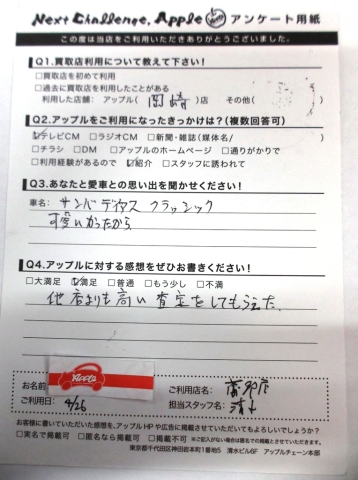 Next Challenge. Apple アンケート用紙
この度は当店をご利用いただきありがとうございました。
Q1.買取店利用について教えて下さい!
□買取店を初めて利用
□過去に買取店を利用したことがある
利用した店舗: アップル( 岡崎 )店 その他( )
Q2.アップルをご利用になったきっかけは?(複数回答可)
☑テレビCM □ラジオCM □新聞・雑誌(媒体名/ )
□チラシ □DM □アップルのホームページ □通りがかりで
□利用経験があるので ☑紹介 □スタッフに誘われて
Q3.あなたと愛車との思い出を聞かせください!
車名: サンバディアス クラシック
可愛いかったから
Q4.アップルに対する感想をぜひお書きください!
□大満足 ☑満足 □普通 □もう少し □不満
他店よりも高い査定をしてもらえた.
お名前 Apple
ご利用店名:
ご利用日: 4/26 担当スタッフ名:
お客様に書いていただいた感想を、アップルHPや広告に掲載させていただいてもよろしいでしょうか?
□実名で掲載可 □匿名なら掲載可 □掲載不可 ※ご記入がない場合は匿名での掲載とさせていただきます。
東京都千代田区神田岩本町1番地5 清水ビル6F アップルチェーン本部